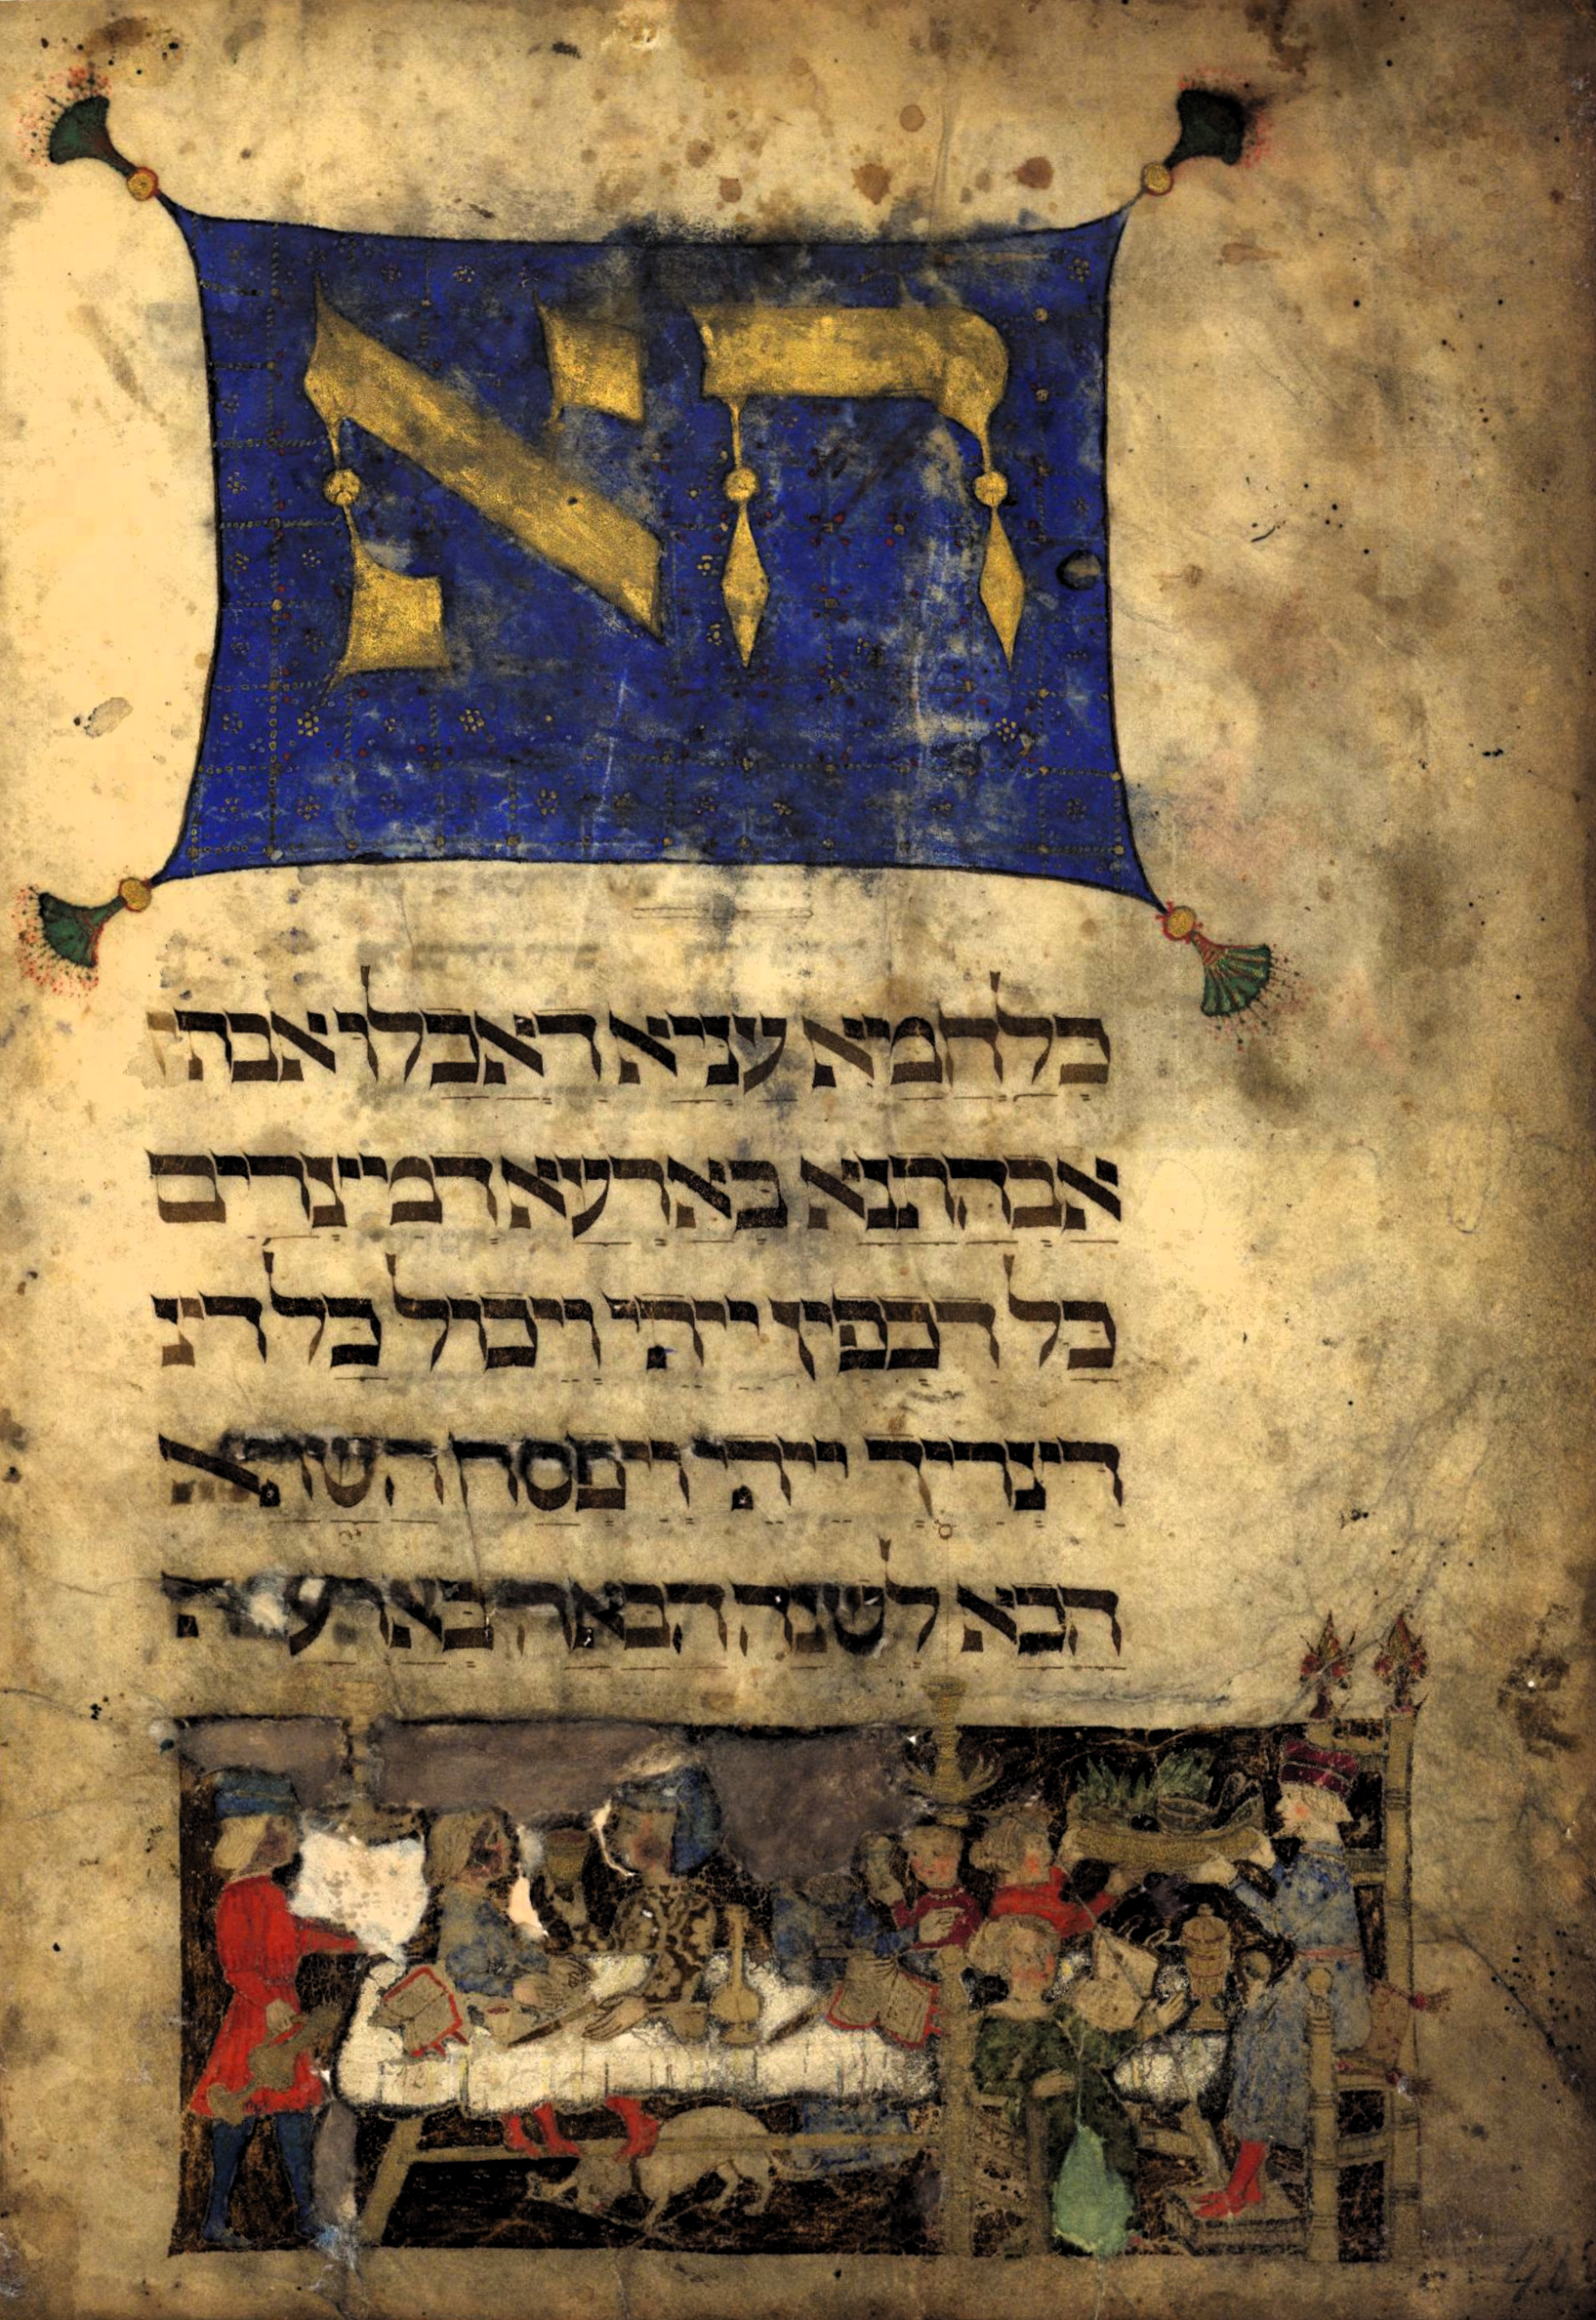 הא
כלחמא עניא דאכלו
אבהתנא בארעא דמיצרים
כל דכפין ייתי ויכול כל דיצ
דיצריך ייתי ויפסח השתא
הכא לשנה הבאה